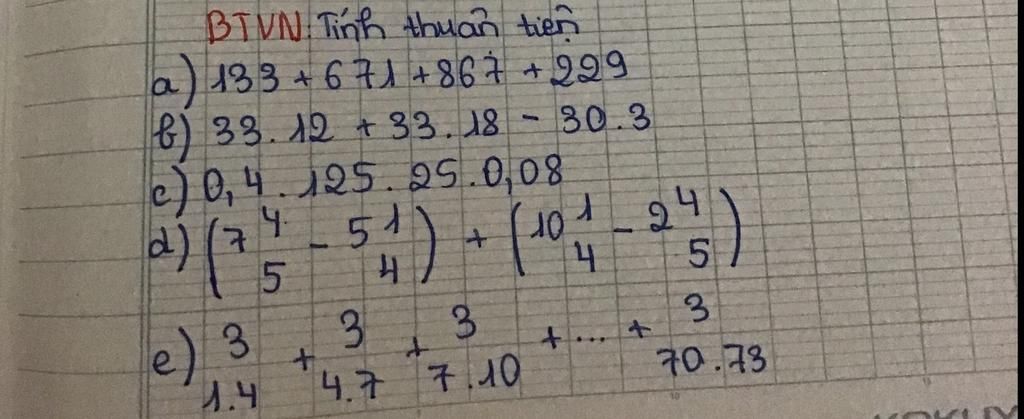 BTVN: Tính thuận tiện
a) 133 + 671 + 867 + 229
b) 33.12 + 33.18 - 30.3
c) 0,4.125.25.0,08
d) (7 4/5 - 5 1/4) + (10 1/4 - 2 4/5)
e) 3/1.4 + 3/4.7 + 3/7.10 + ... + 3/70.73